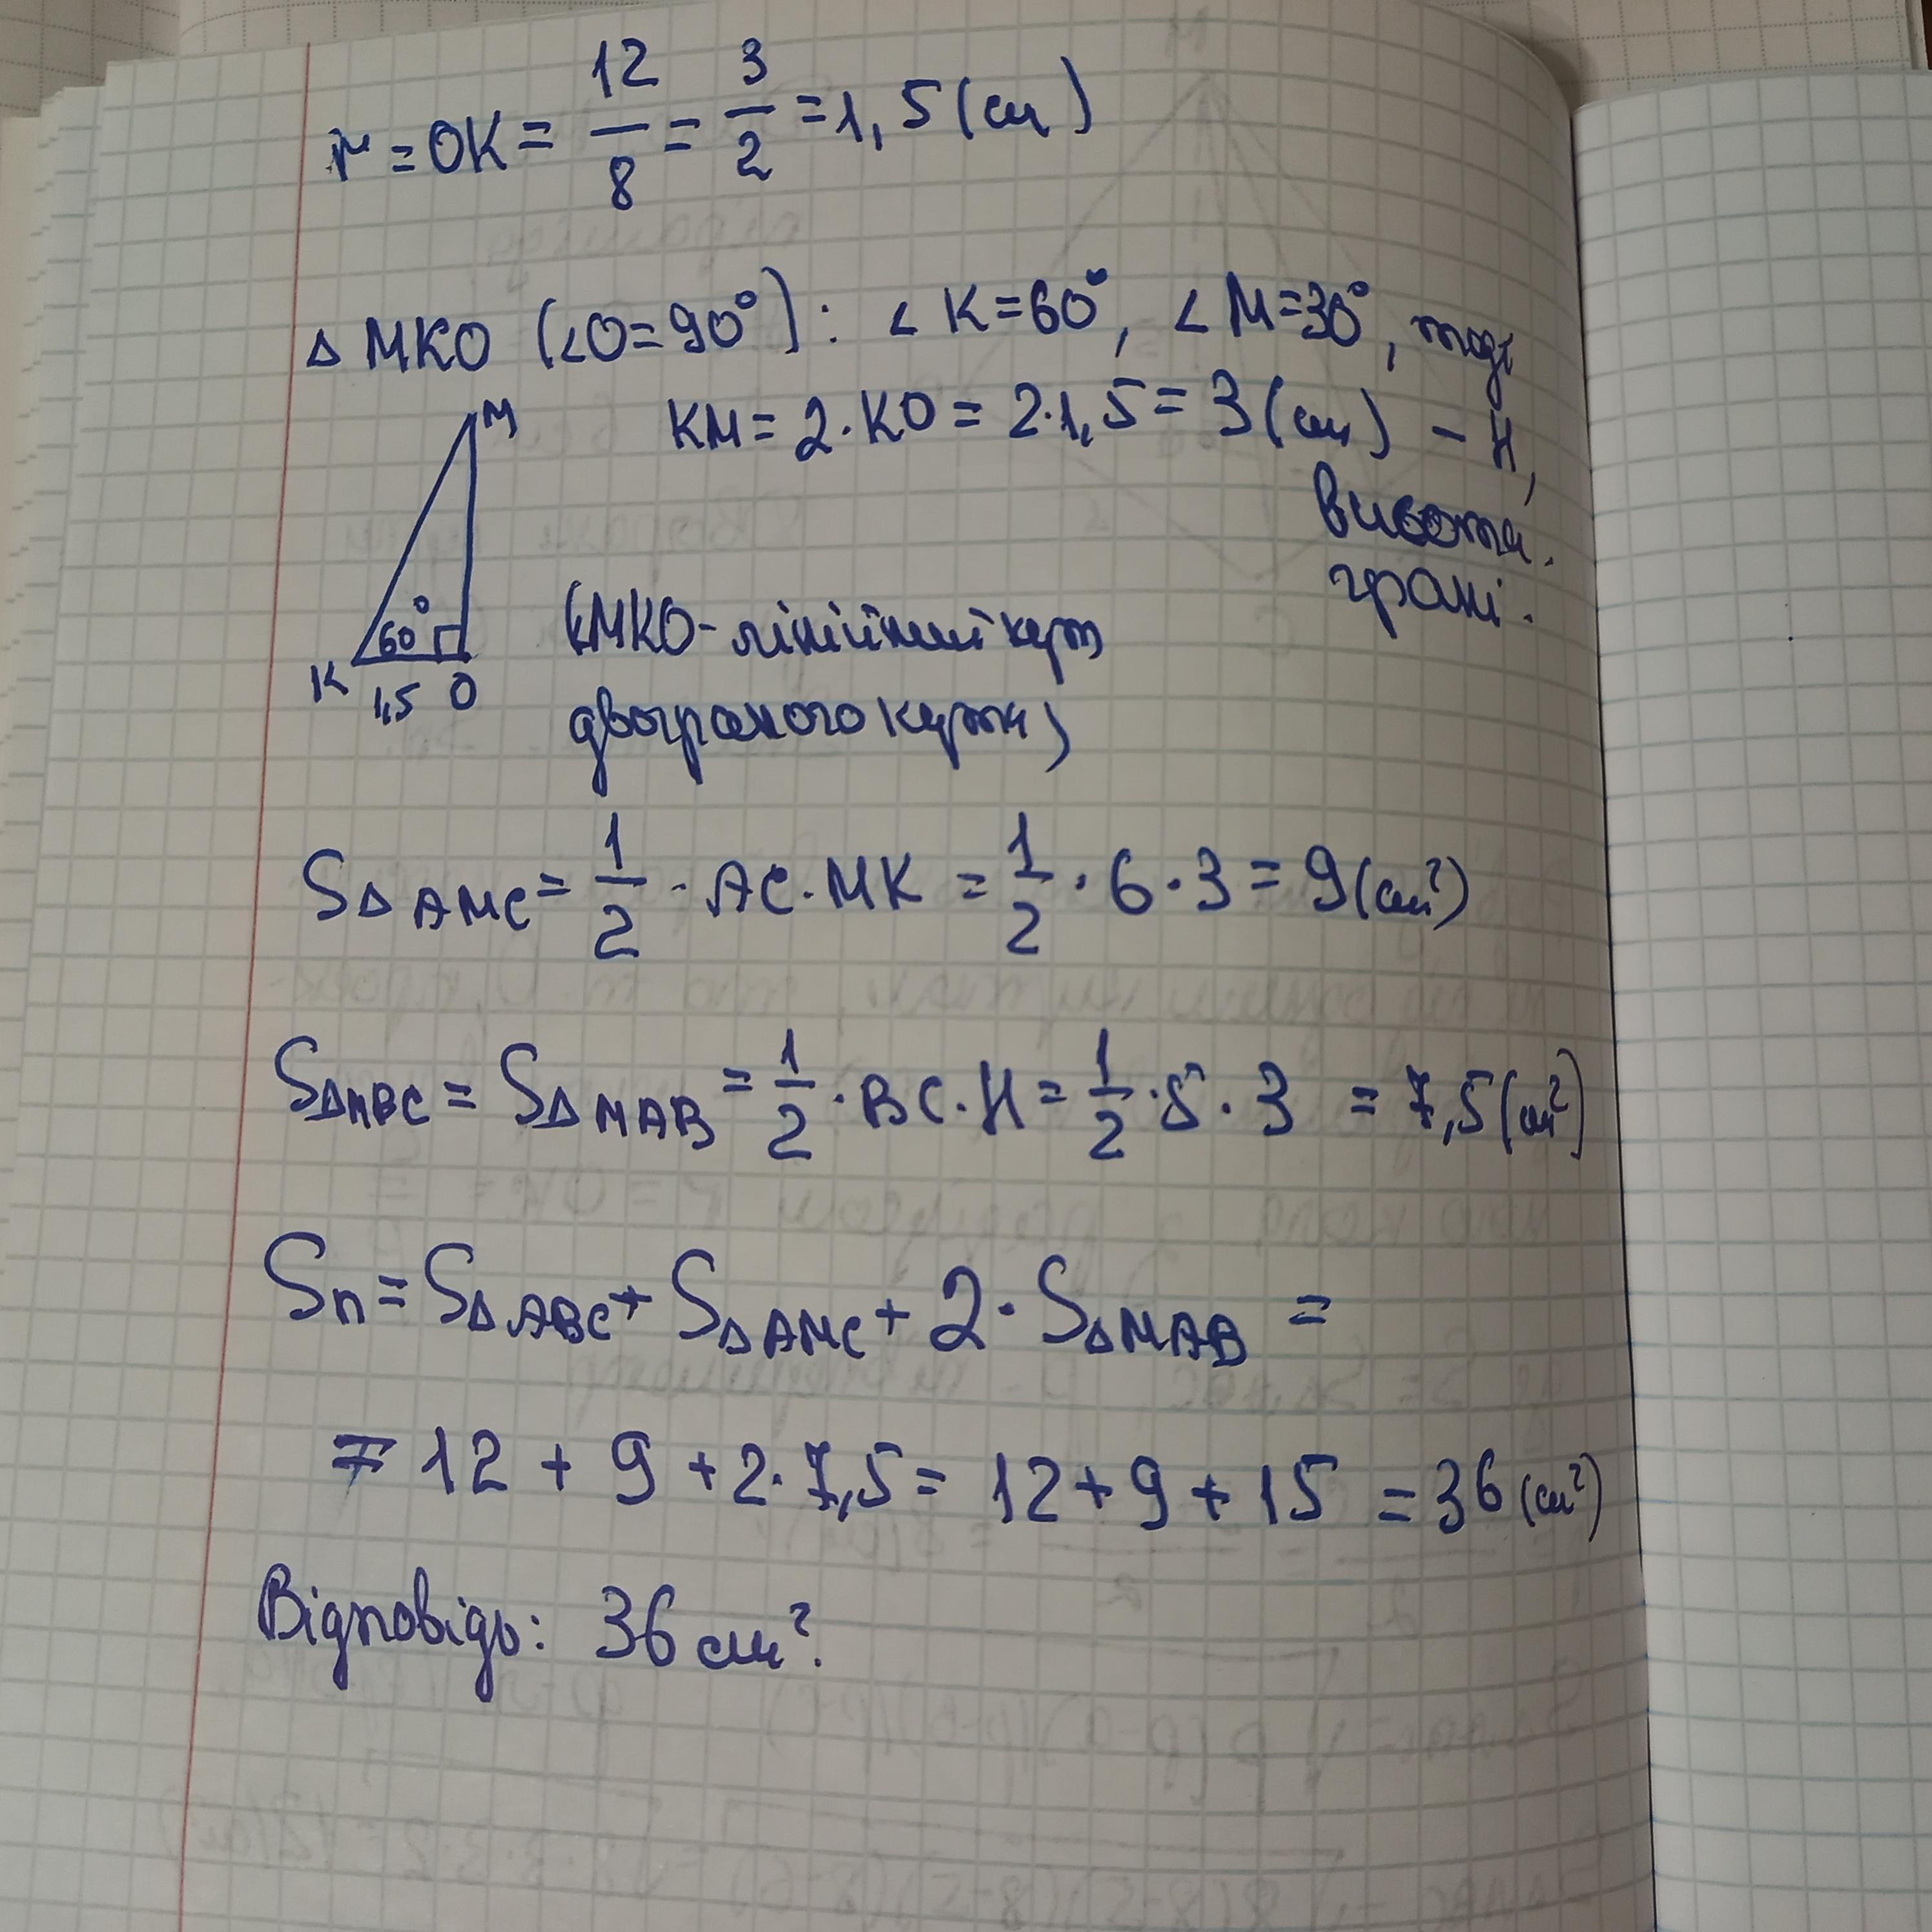 r = OK = 12/8 = 3/2 = 1,5 (см)
Δ МКО (∠O=90°): ∠ K=60°, ∠ M=30°, тоді
КМ = 2·КО = 2·1,5 = 3 (см) – H,
висота
грані.
М
60°
К 1,5 О
(МКО-лінійний кут
двогранного кута)
SΔ AMC = 1/2 · AC·MK = 1/2 · 6 · 3 = 9 (см²)
SΔMBC = SΔ MAB = 1/2 · BC · H = 1/2 · 5 · 3 = 7,5 (см²)
Sп = SΔ ABC + SΔ AMC + 2 · SΔ MAB =
= 12 + 9 + 2·7,5 = 12 + 9 + 15 = 36 (см²)
Відповідь: 36 см².